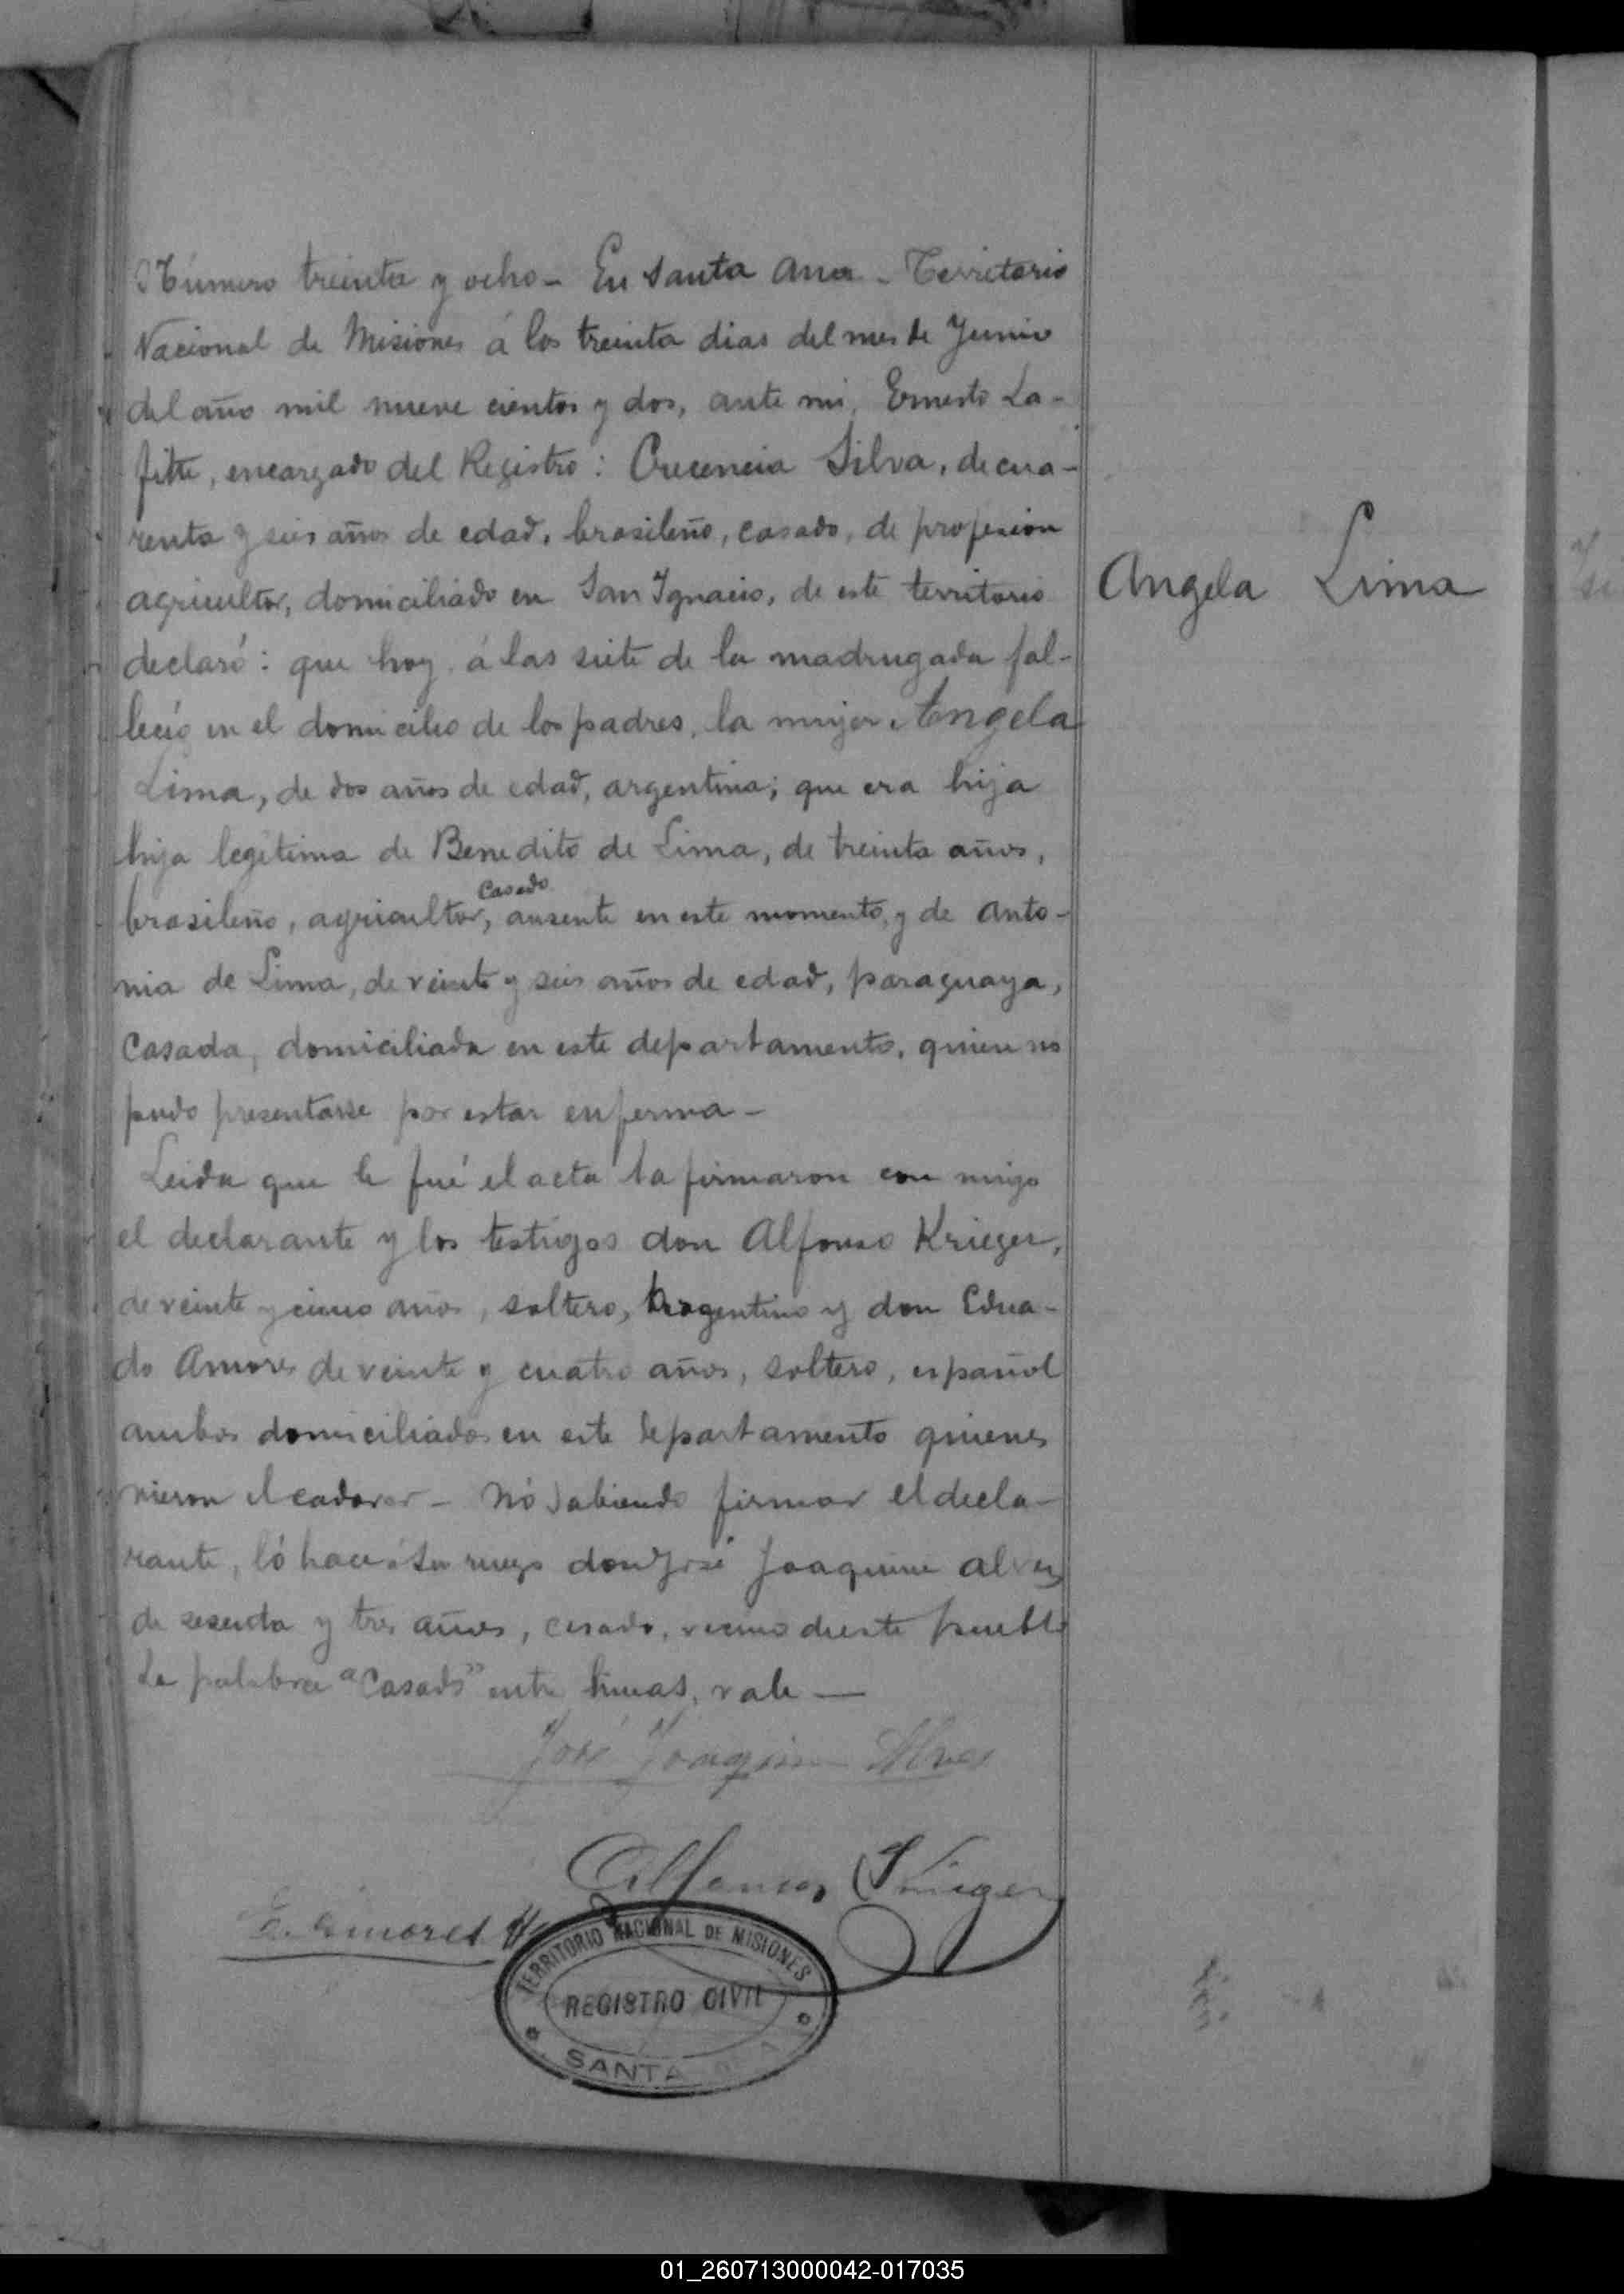 Número treinta y ocho - En Santa Ana - Territorio
Nacional de Misiones á los treinta dias del mes de Junio
del año mil nueve cientos y dos, ante mi, Ernesto La-
fitte, encargado del Registro: Crecencia Silva, de cua-
renta y seis años de edad, brasileño, casado, de profesion
agricultor, domiciliado en San Ignacio, de este territorio
declaró: que hoy á las siete de la madrugada fal-
leció en el domicilio de los padres, la mujer Angela
Lima, de dos años de edad, argentina; que era hija
hija legitima de Benedito de Lima, de treinta años,
casado
brasileño, agricultor, ausente en este momento, y de Anto-
nia de Lima, de veinte y seis años de edad, paraguaya,
casada, domiciliada en este departamento, quien no
pudo presentarse por estar enferma -
Leida que le fué el acta la firmaron con migo
el declarante y los testigos don Alfonso Krieger,
de veinte y cinco años, soltero, argentino y don Edua-
do Amores de veinte y cuatro años, soltero, español
ambos domiciliados en este departamento quienes
vieron el cadaver - Nó sabiendo firmar el decla-
rante, ló hace á su ruego don José Joaquim Alves
de sesenta y tres años, casado, vecino de este pueblo
La palabra "Casado" entre lineas, vale —
José Joaquim Alves
Alfonso Krieger
E. Amores
TERRITORIO NACIONAL DE MISIONES
REGISTRO CIVIL
SANTA ANA
Angela Lima
01_260713000042-017035